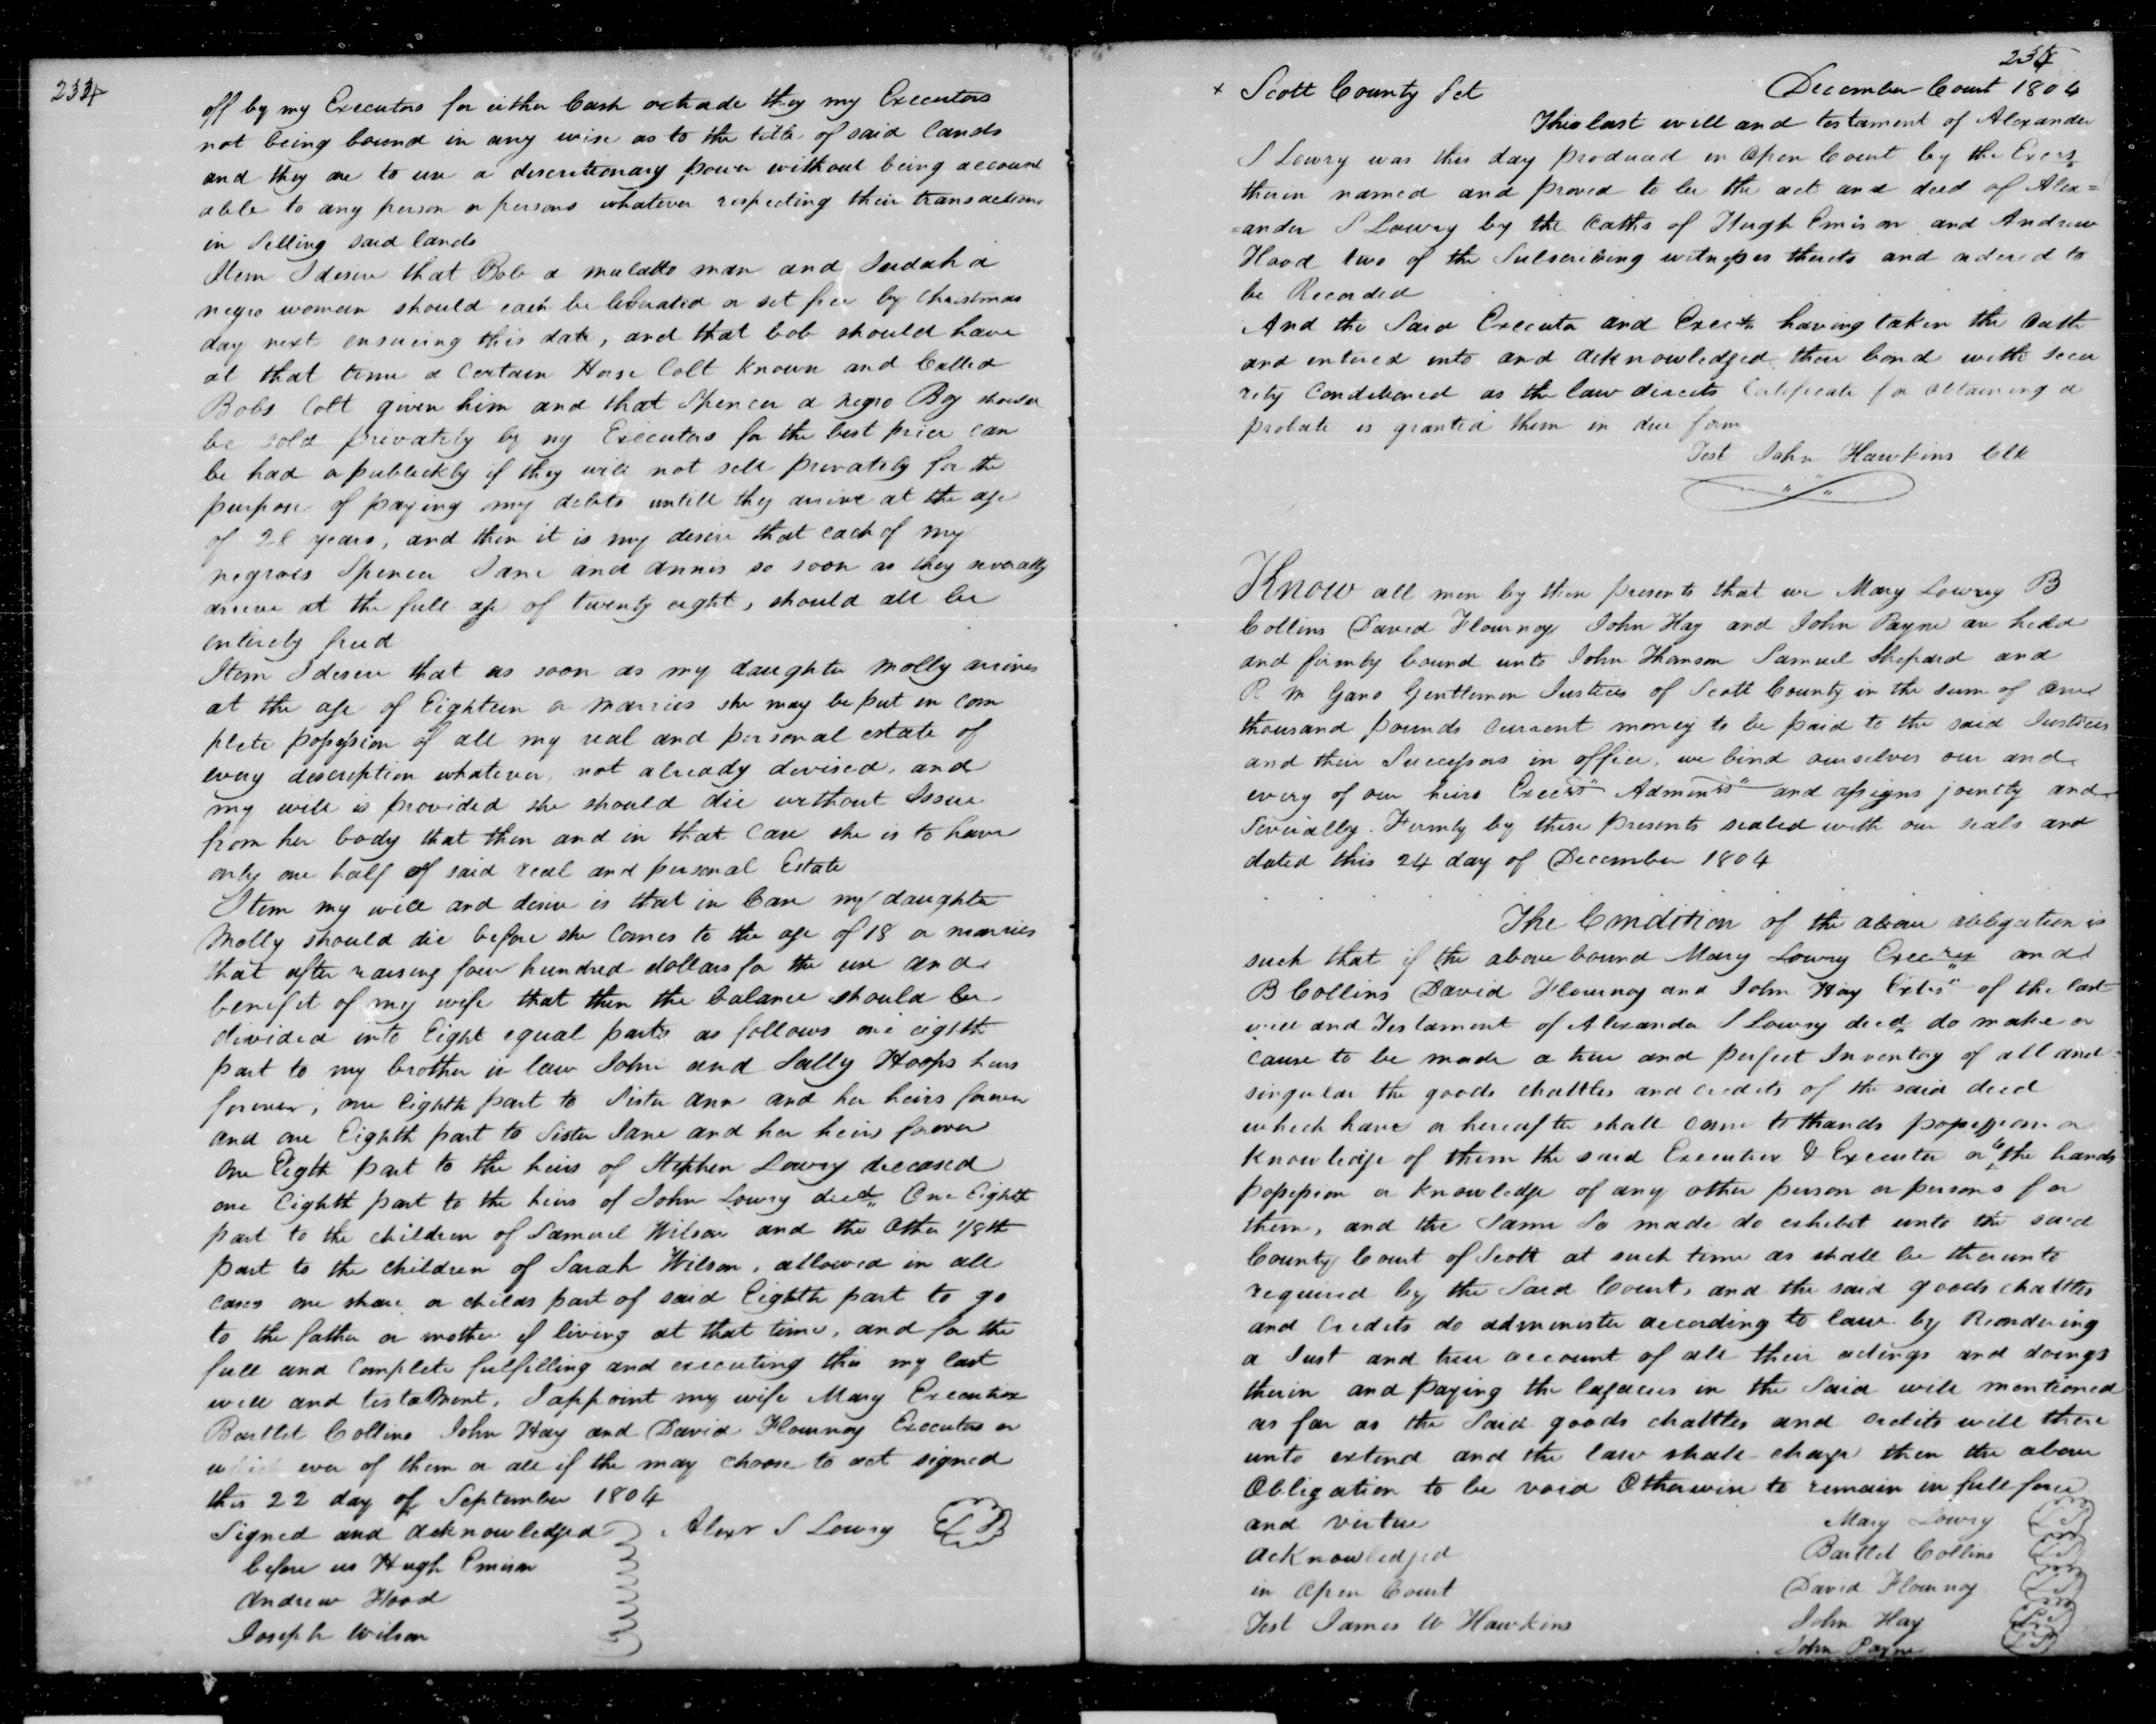 234
off by my Executors for either Cash or trade they my Executors
not being bound in any wise as to the title of said lands
and they are to use a descretionary power without being account
able to any person or persons whatever respecting their transactions
in Selling said lands
Item I desire that Bob a mulatto man and Judah a
negro woman should each be liberated or set free by Christmas
day next ensueing this date, and that bob should have
at that time a Certain Horse Colt known and Called
Bobs Colt given him and that Spencer a negro Boy should
be sold privately by my Executors for the best price can
be had or publickly if they will not sell privately for the
purpose of paying my debts untill they arrive at the age
of 28 years, and then it is my desire that each of my
negroes Spencer Jane and annis so soon as they severally
arrive at the full age of twenty eight, should all be
entirely freed
Item I desire that as soon as my daughter Molly arrives
at the age of Eighteen or Marries she may be put in Com
plete possession of all my real and personal estate of
every description whatever, not already devised, and
my will is provided she should die without Issue
from her body that then and in that Case she is to have
only one half of said real and personal Estate
Item my will and desire is that in Case my daughter
Molly should die before she Comes to the age of 18 or marries
that after raising four hundred dollars for the use and
benifit of my wife that then the balance should be
divided into Eight equal parts as follows one eighth
part to my brother in law John and Sally Hoops heirs
forever, one Eighth part to Sister Ann and her heirs forever
and one Eighth part to Sister Jane and her heirs forever
One Eigth part to the heirs of Stephen Lowry deceased
one Eighth part to the heirs of John Lowry decd One Eighth
part to the children of Samuel Wilson and the Other 1/8th
part to the children of Sarah Wilson, allowed in all
cases one share or childs part of said Eighth part to go
to the father or mother if living at that time, and for the
full and Complete fulfilling and executing this my last
will and testament, I appoint my wife Mary Executrix
Bartlet Collins John Hay and David Flournoy Executors or
which ever of them or all if the may choose to act signed
this 22 day of September 1804
Signed and Acknowledged Alexr S Lowry LS
before us Hugh Emison
Andrew Hood
Joseph Wilson
234
+ Scott County Sct December Court 1804
This last will and testament of Alexander
S Lowry was this day produced in Open Court by the Exers
therein named and proved to be the act and deed of Alex=
=ander S Lowry by the Oaths of Hugh Emison and Andrew
Hood two of the Subscribing witnesses thereto and ordered to
be Recorded
And the Said Executor and Execx having taken the Oath
and entered into and acknowledged their bond with Secu
rity Conditioned as the law directs Certificate for obtaining a
probate is granted them in due form
Test John Hawkins Clk
Know all men by these presents that we Mary Lowry B
Collins David Flournoy John Hay and John Payne are held
and firmly bound unto John Thomson Samuel Shepard and
R M Gano Gentlemen Justices of Scott County in the sum of One
thousand pounds Current money to be paid to the said Justices
and their Successors in office, we bind ourselves our and
every of our heirs Execrs Adminrs and assigns jointly and
Severally Firmly by these presents sealed with our seals and
dated this 24 day of December 1804
The Condition of the above obligation is
such that if the above bound Mary Lowry Execrex and
B Collins David Flournoy and John Hay Extrs of the last
will and Testament of Alexander S Lowry decd do make or
cause to be made a true and perfect Inventory of all and
singular the goods chattles and credits of the said decd
which have or hereafter shall come to thands possession or
knowledge of them the said Executrix & Executor or the hands
possession or knowledge of any other person or persons for
them, and the Same So made do exhibit unto the said
County Court of Scott at such time as shall be thereunto
required by the Said Court, and the said goods chattles
and Credits do administer according to law by Reondering
a Just and true account of all their actings and doings
therin and paying the legacies in the Said will mentioned
as far as the Said goods chattles and credits will there
unto extend and the law shall charge then the above
Obligation to be void Otherwise to remain in full force
and virtue Mary Lowry LS
Acknowledged Bartlet Collins LS
in Open Court David Flournoy LS
Test James W Hawkins John Hay LS
John Payne LS